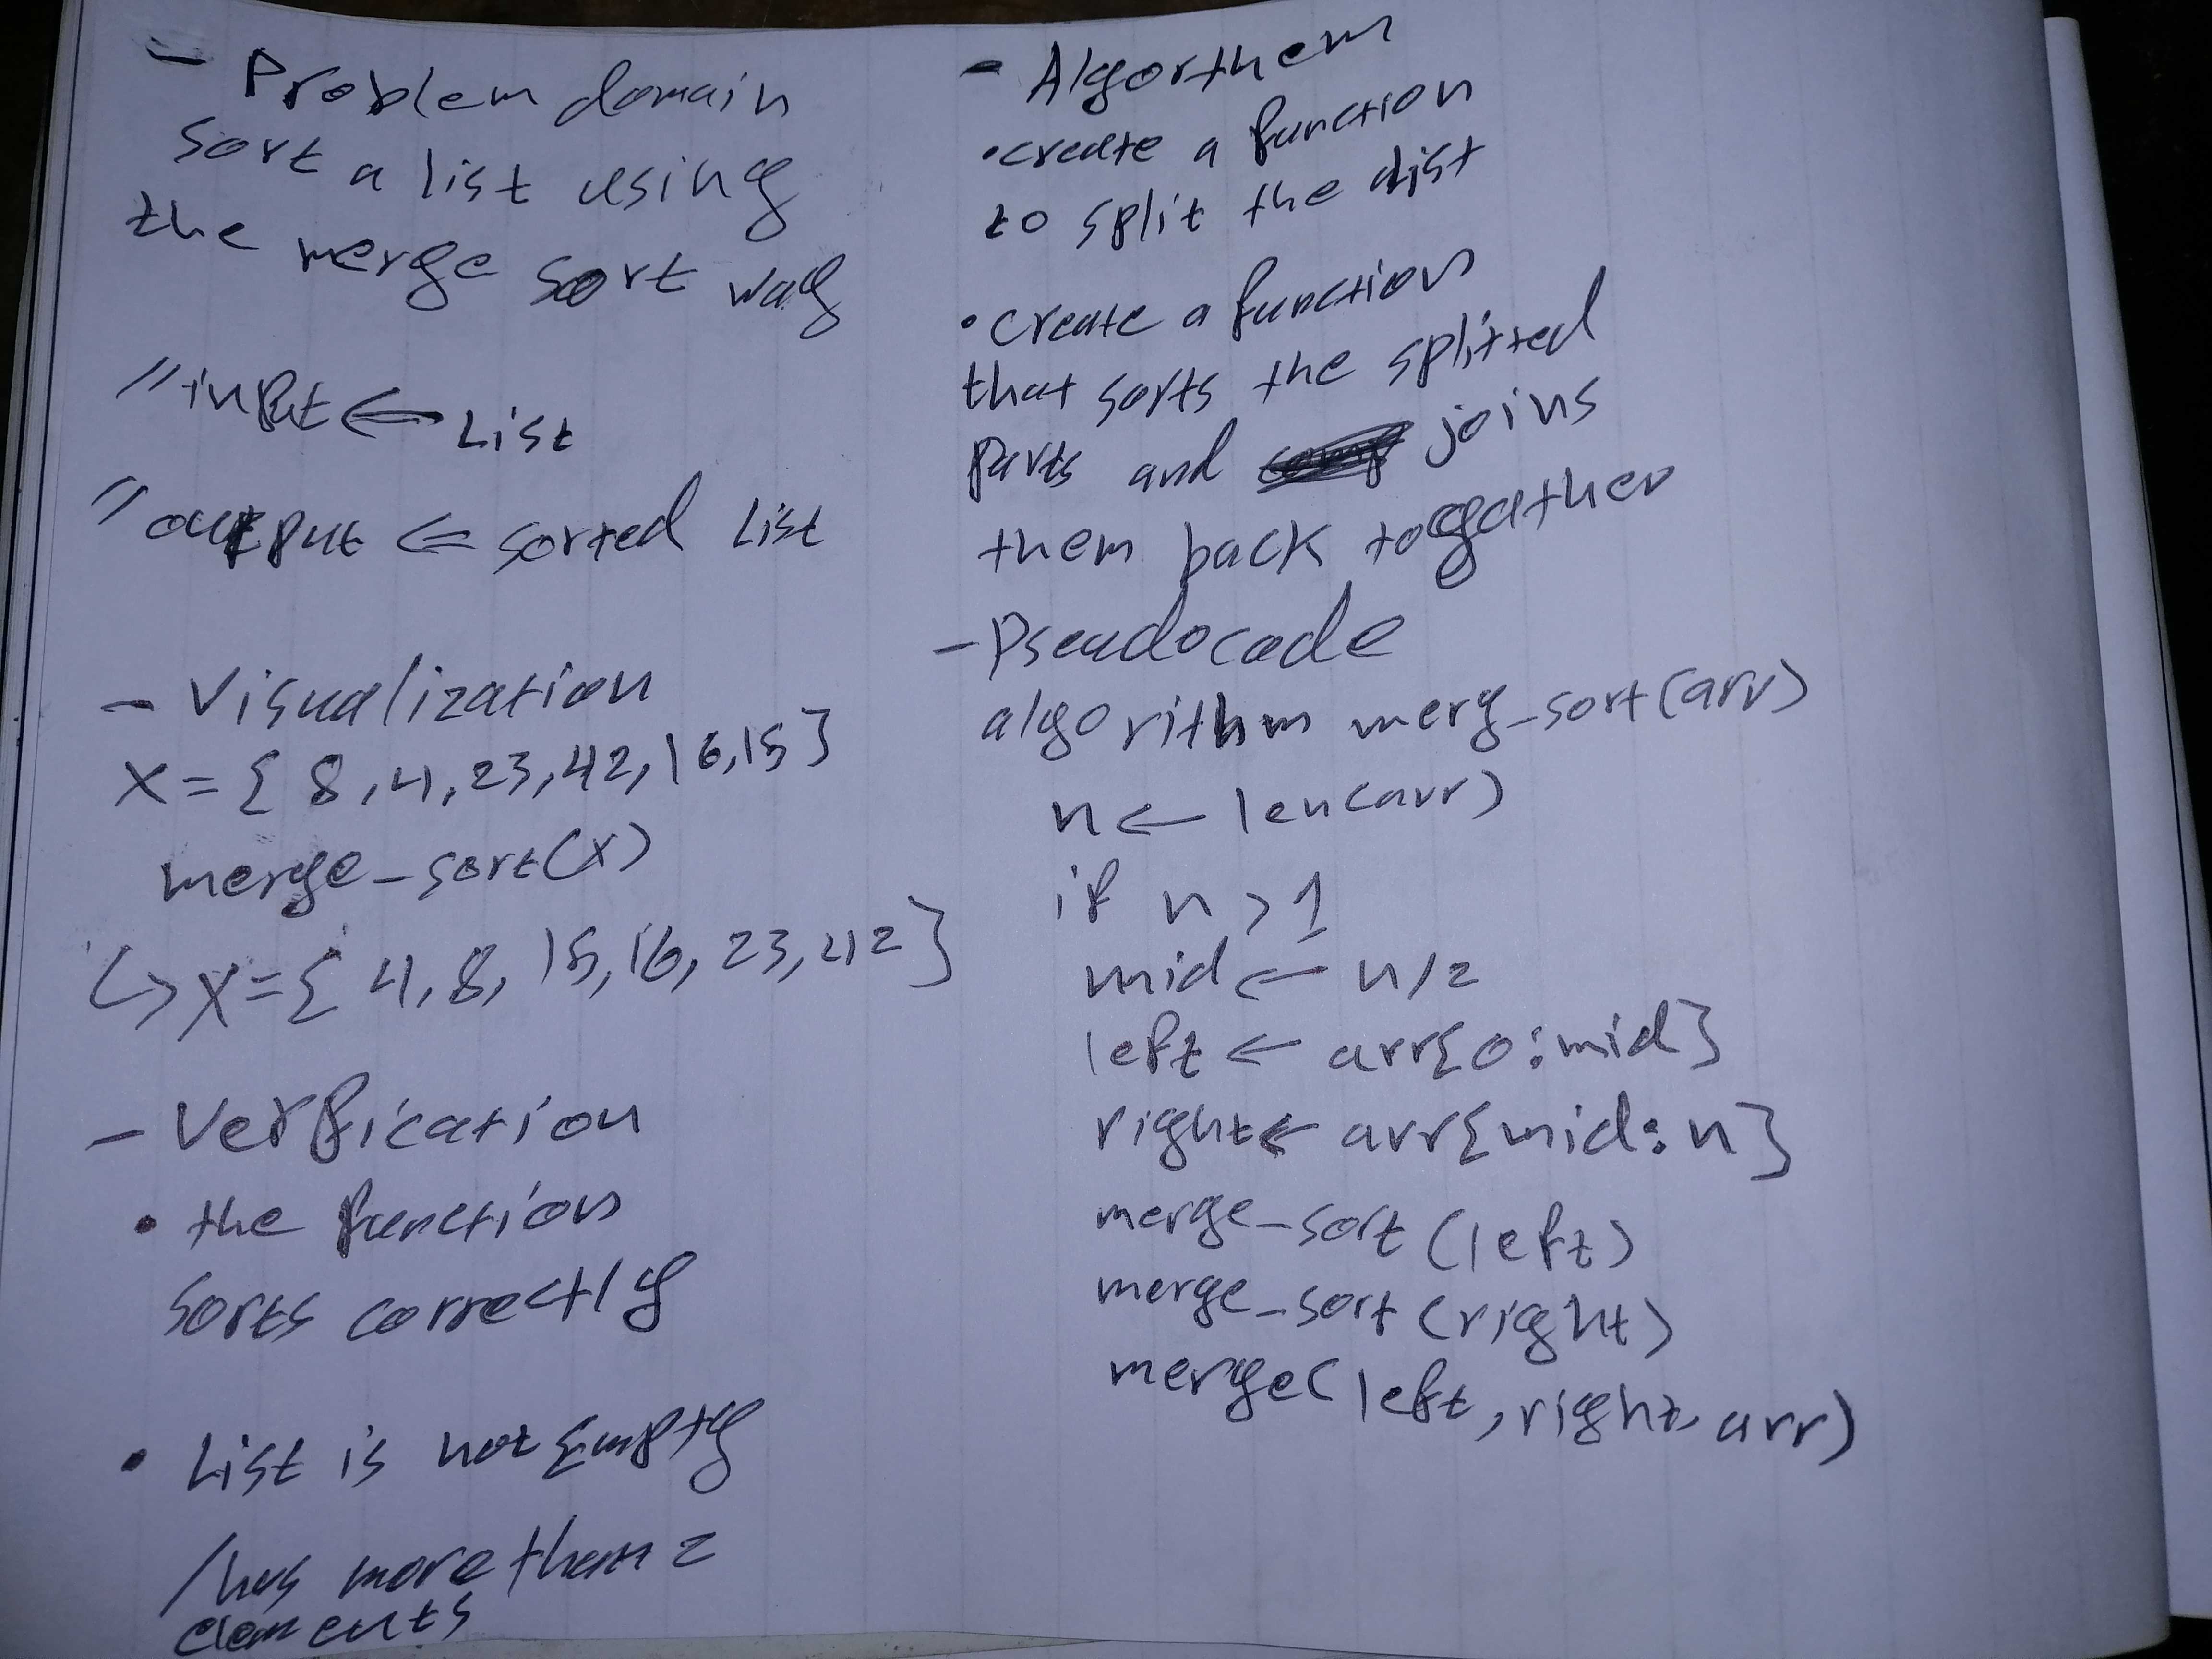 - Problem domain
sort a list using
the merge sort way
"input ← List
"output ← sorted List
- Visualization
X = { 8, 4, 23, 42, 16, 15 }
merge_sort(x)
↳ X = { 4, 8, 15, 16, 23, 42 }
- Verfication
• the function
sorts correctly
• List is not Empty
/has more then 2
elements
- Algorthem
• create a function
to split the list
• create a function
that sorts the splitted
parts and joins
them back togather
- Pseudocode
algorithm merg_sort(arr)
n ← len(arr)
if n > 1
mid ← n/2
left ← arr{0:mid}
right ← arr{mid:n}
merge_sort (left)
merge_sort (right)
merge( left, right, arr)